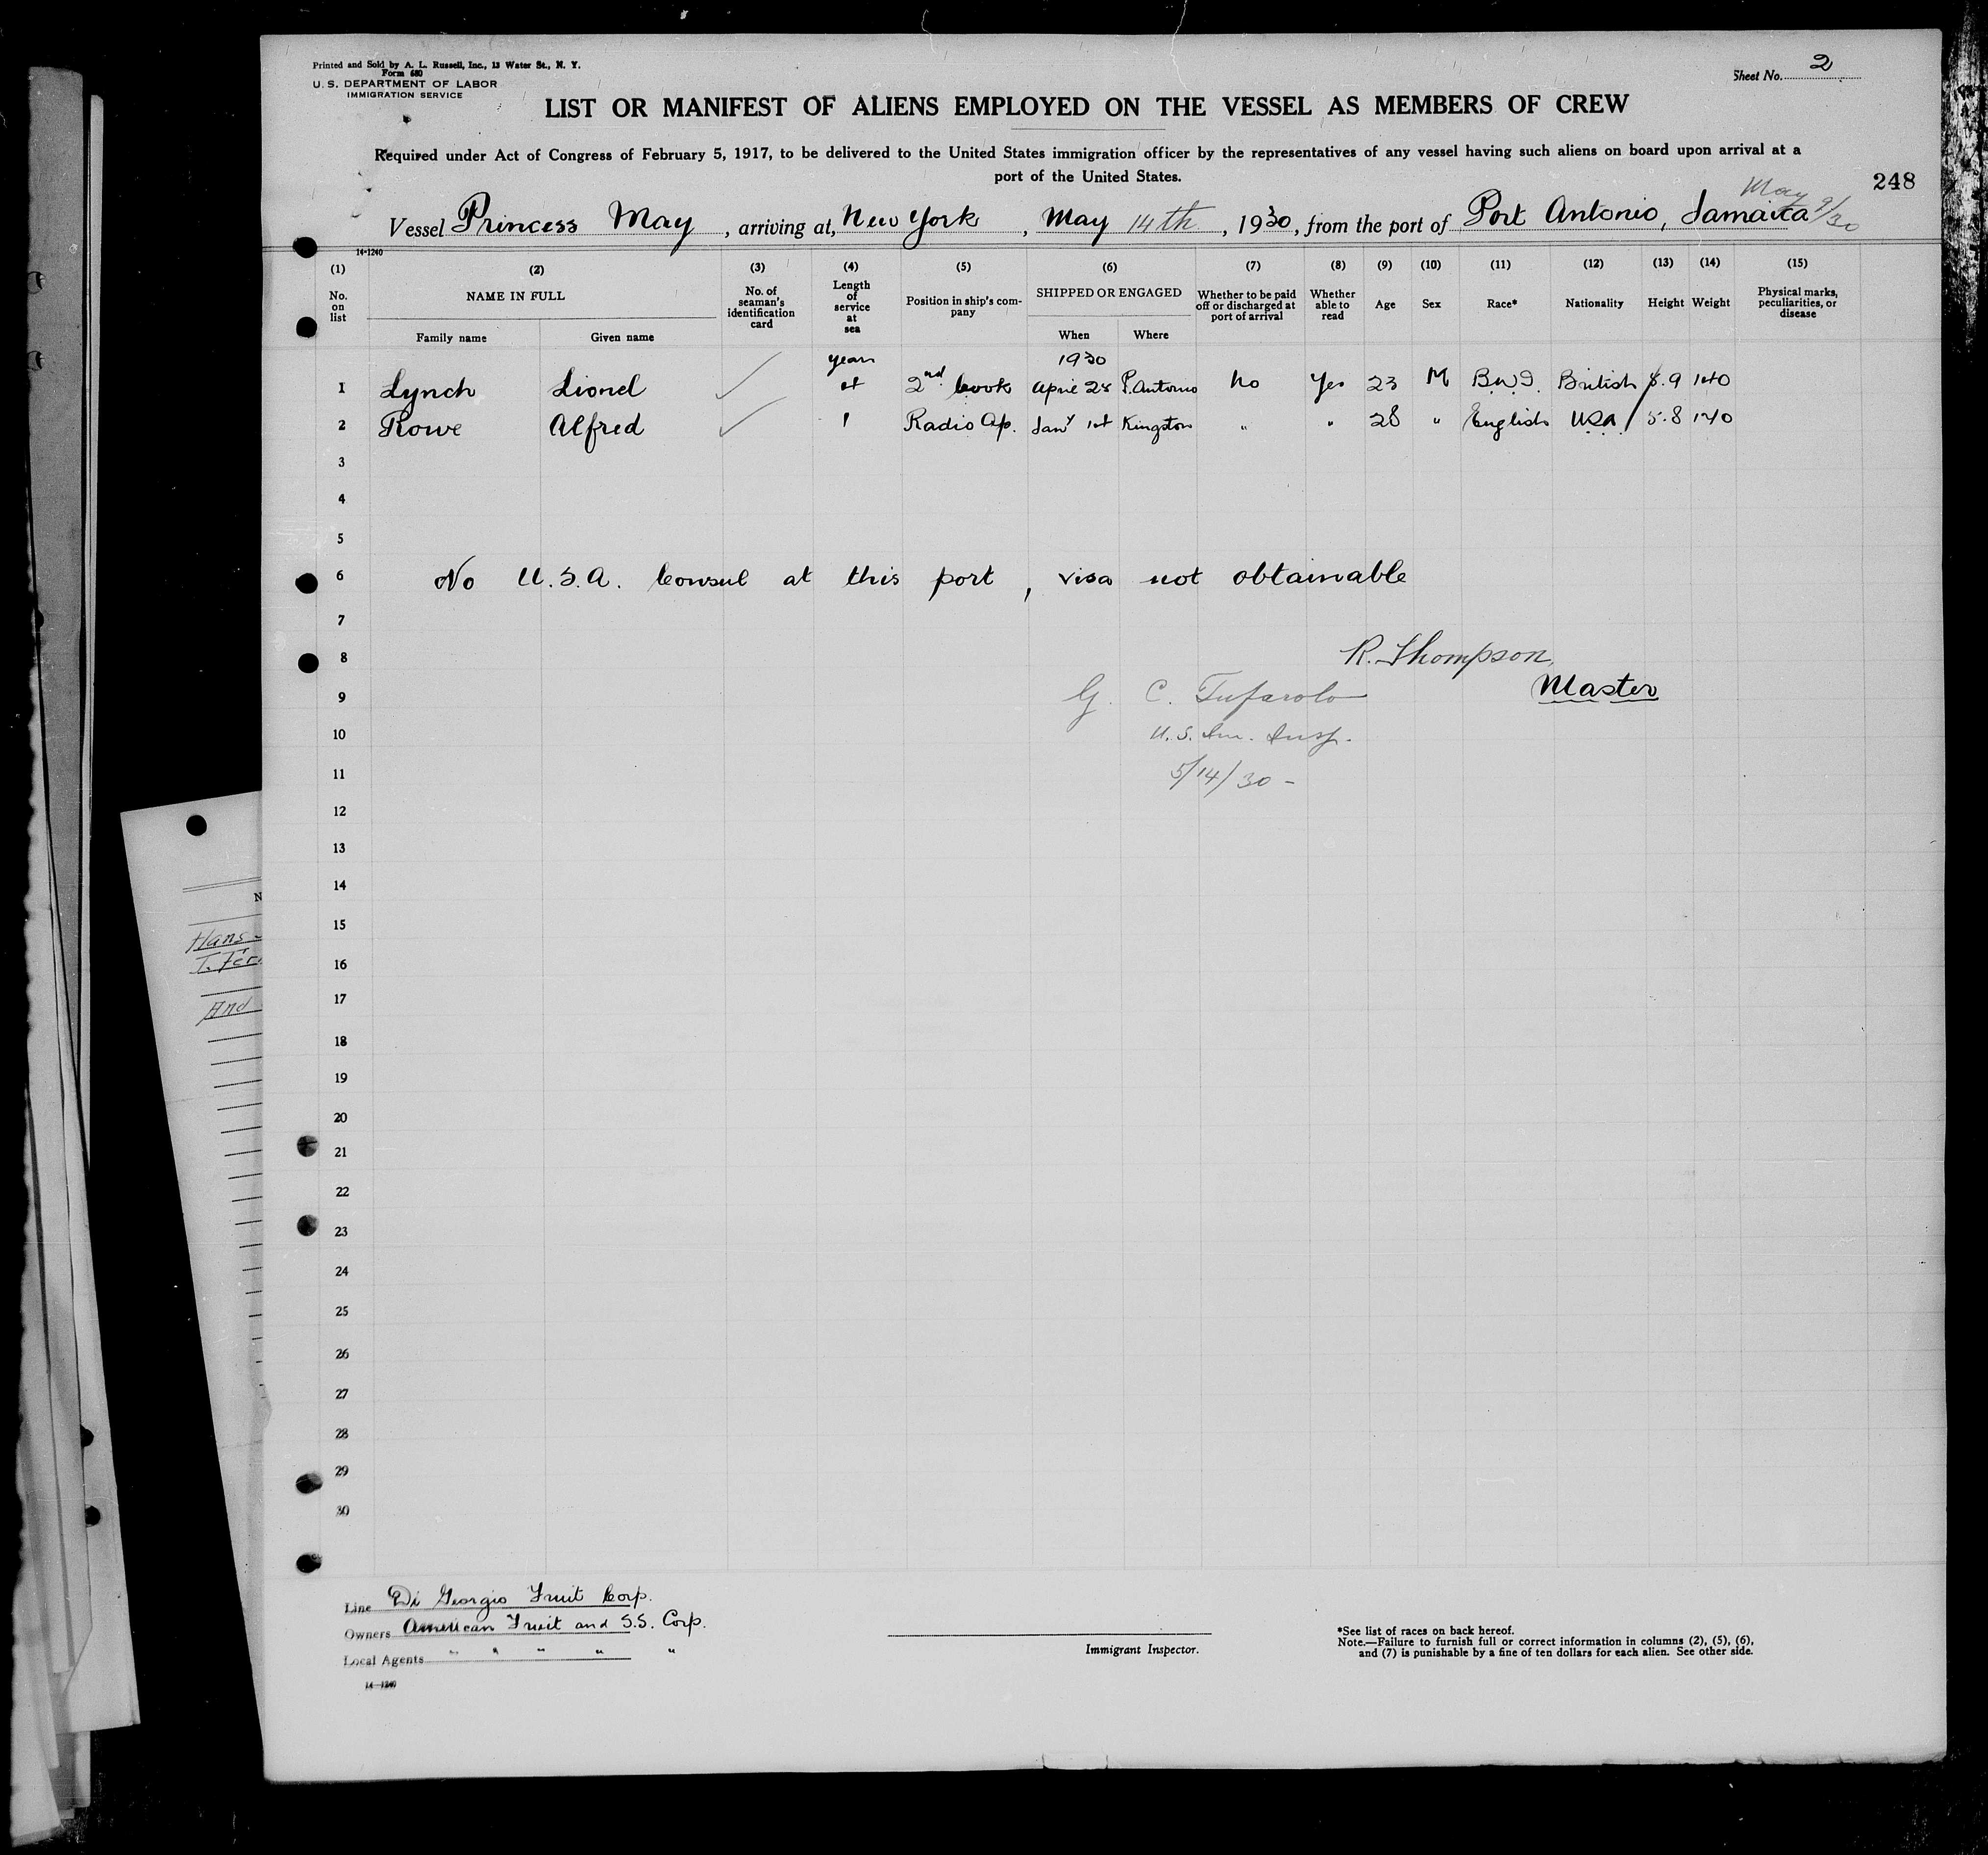 Printed and Sold by A. L. Russell, Inc., 13 Water St., N. Y.
Form 680
U. S. DEPARTMENT OF LABOR
IMMIGRATION SERVICE
Sheet No. 2
LIST OR MANIFEST OF ALIENS EMPLOYED ON THE VESSEL AS MEMBERS OF CREW
Required under Act of Congress of February 5, 1917, to be delivered to the United States immigration officer by the representatives of any vessel having such aliens on board upon arrival at a
port of the United States.
248
May 9/30
Vessel Princess May, arriving at, New York, May 14th, 1930, from the port of Port Antonio, Jamaica
14-1240
(1) (2) (3) (4) (5) (6) (7) (8) (9) (10) (11) (12) (13) (14) (15)
No. on list
NAME IN FULL
Family name Given name
No. of seaman's identification card
Length of service at sea
Position in ship's company
SHIPPED OR ENGAGED
When Where
Whether to be paid off or discharged at port of arrival
Whether able to read
Age Sex Race* Nationality Height Weight
Physical marks, peculiarities, or disease
years 1930
1 Lynch Lionel 2nd Cook April 28 P. Antonio No Yes 23 M B.W.I. British 5.9 140
2 Rowe Alfred 1 Radio Op. Jany 1st Kingston " " 28 " English USA 5.8 140
3
4
5
6 No U.S.A. Consul at this port, visa not obtainable
7
8 R. Thompson,
Master
9 G. C. Tufarolo
10 U.S. Im. Insp.
11 5/14/30 -
12
13
14
15
16
17
18
19
20
21
22
23
24
25
26
27
28
29
30
Line Di Georgio Fruit Corp.
Owners American Fruit and S.S. Corp.
Local Agents " " " " "
14-1240
Immigrant Inspector.
*See list of races on back hereof.
Note.—Failure to furnish full or correct information in columns (2), (5), (6),
and (7) is punishable by a fine of ten dollars for each alien. See other side.
N
Hans
T. Fer
And